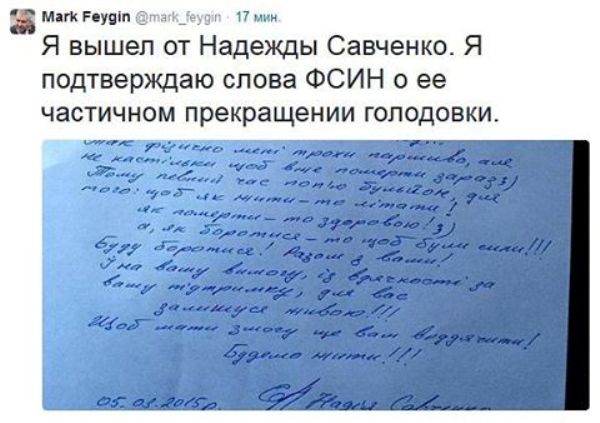 Mark Feygin @mark_feygin · 17 мин.
Я вышел от Надежды Савченко. Я
подтверждаю слова ФСИН о ее
частичном прекращении голодовки.
так фізично мені трохи паршиво, але
не настільки щоб вже померти зараз :)
Тому певний час попью бульйон, для
того: щоб як жити – то літати!
як померти – то здоровою! :)
а, як боротися – то щоб були сили!!!
Буду боротися! Разом з вами!
І на вашу вимогу, із вдячності за
вашу підтримку, для вас
залишуся живою!!!
Щоб мати змогу ще вам віддячити!
Будемо жити!!!
05.03.2015р. Надія Савченко